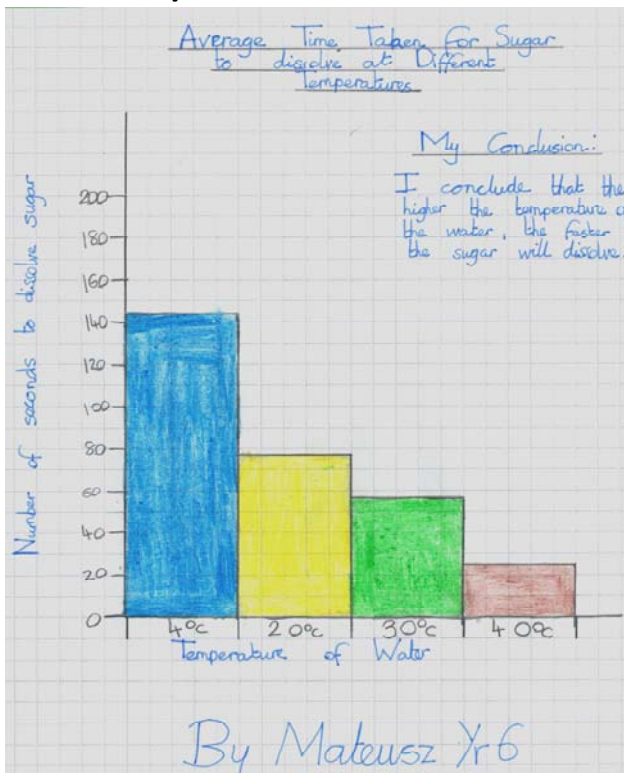 Average Time Taken For Sugar
to dissolve at Different
Temperatures
My Conclusion:
I conclude that the
higher the temperature
the water, the faster
the sugar will dissolve.
Number of seconds to dissolve sugar
200
180
160
140
120
100
80
60
40
20
0
4°c
20°c
30°c
40°c
Temperature of Water
By Mateusz Yr 6